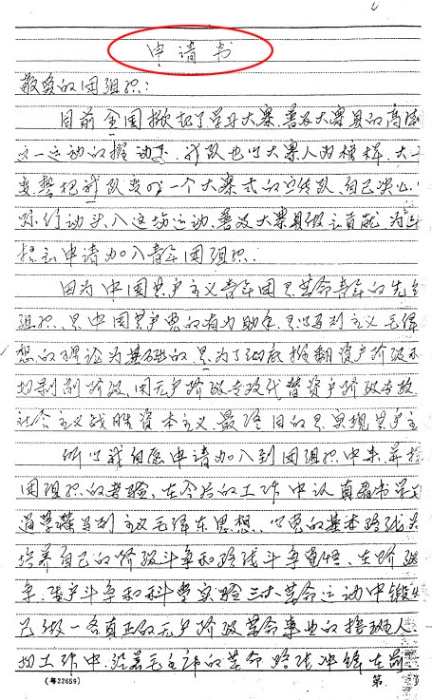 申请书
敬爱的团组织:
目前全国掀起了学习大寨,普及大寨县的高
这一运动的推动下,我队也以大寨人为榜样,大
整把我队变为一个大寨式的 队,自己决心
际行动投入这场运动,普及大寨县做 贡献,为
提出申请加入青年团组织.
因为中国共产主义青年团是革命青年的先
组织,是中国共产党的有力助手,是以马列主义毛泽
想的理论为基础的,是为了彻底推翻资产阶级和
切剥削阶级,用无产阶级专政代替资产阶级专政
社会主义战胜资本主义,最终目的是实现共产主
所以我自愿申请加入到团组织中来,并
团组织的考验,在今后的工作中认真看书学习
通 马列主义毛泽东思想,以党的基本路线为
培养自己的阶级斗争和路线斗争觉悟,在阶级
争,生产斗争和科学实验三大革命运动中锻
己做一名真正的无产阶级革命事业的接班人.
切工作中,沿着毛主席的革命路线冲锋在前
(粤22659)
第